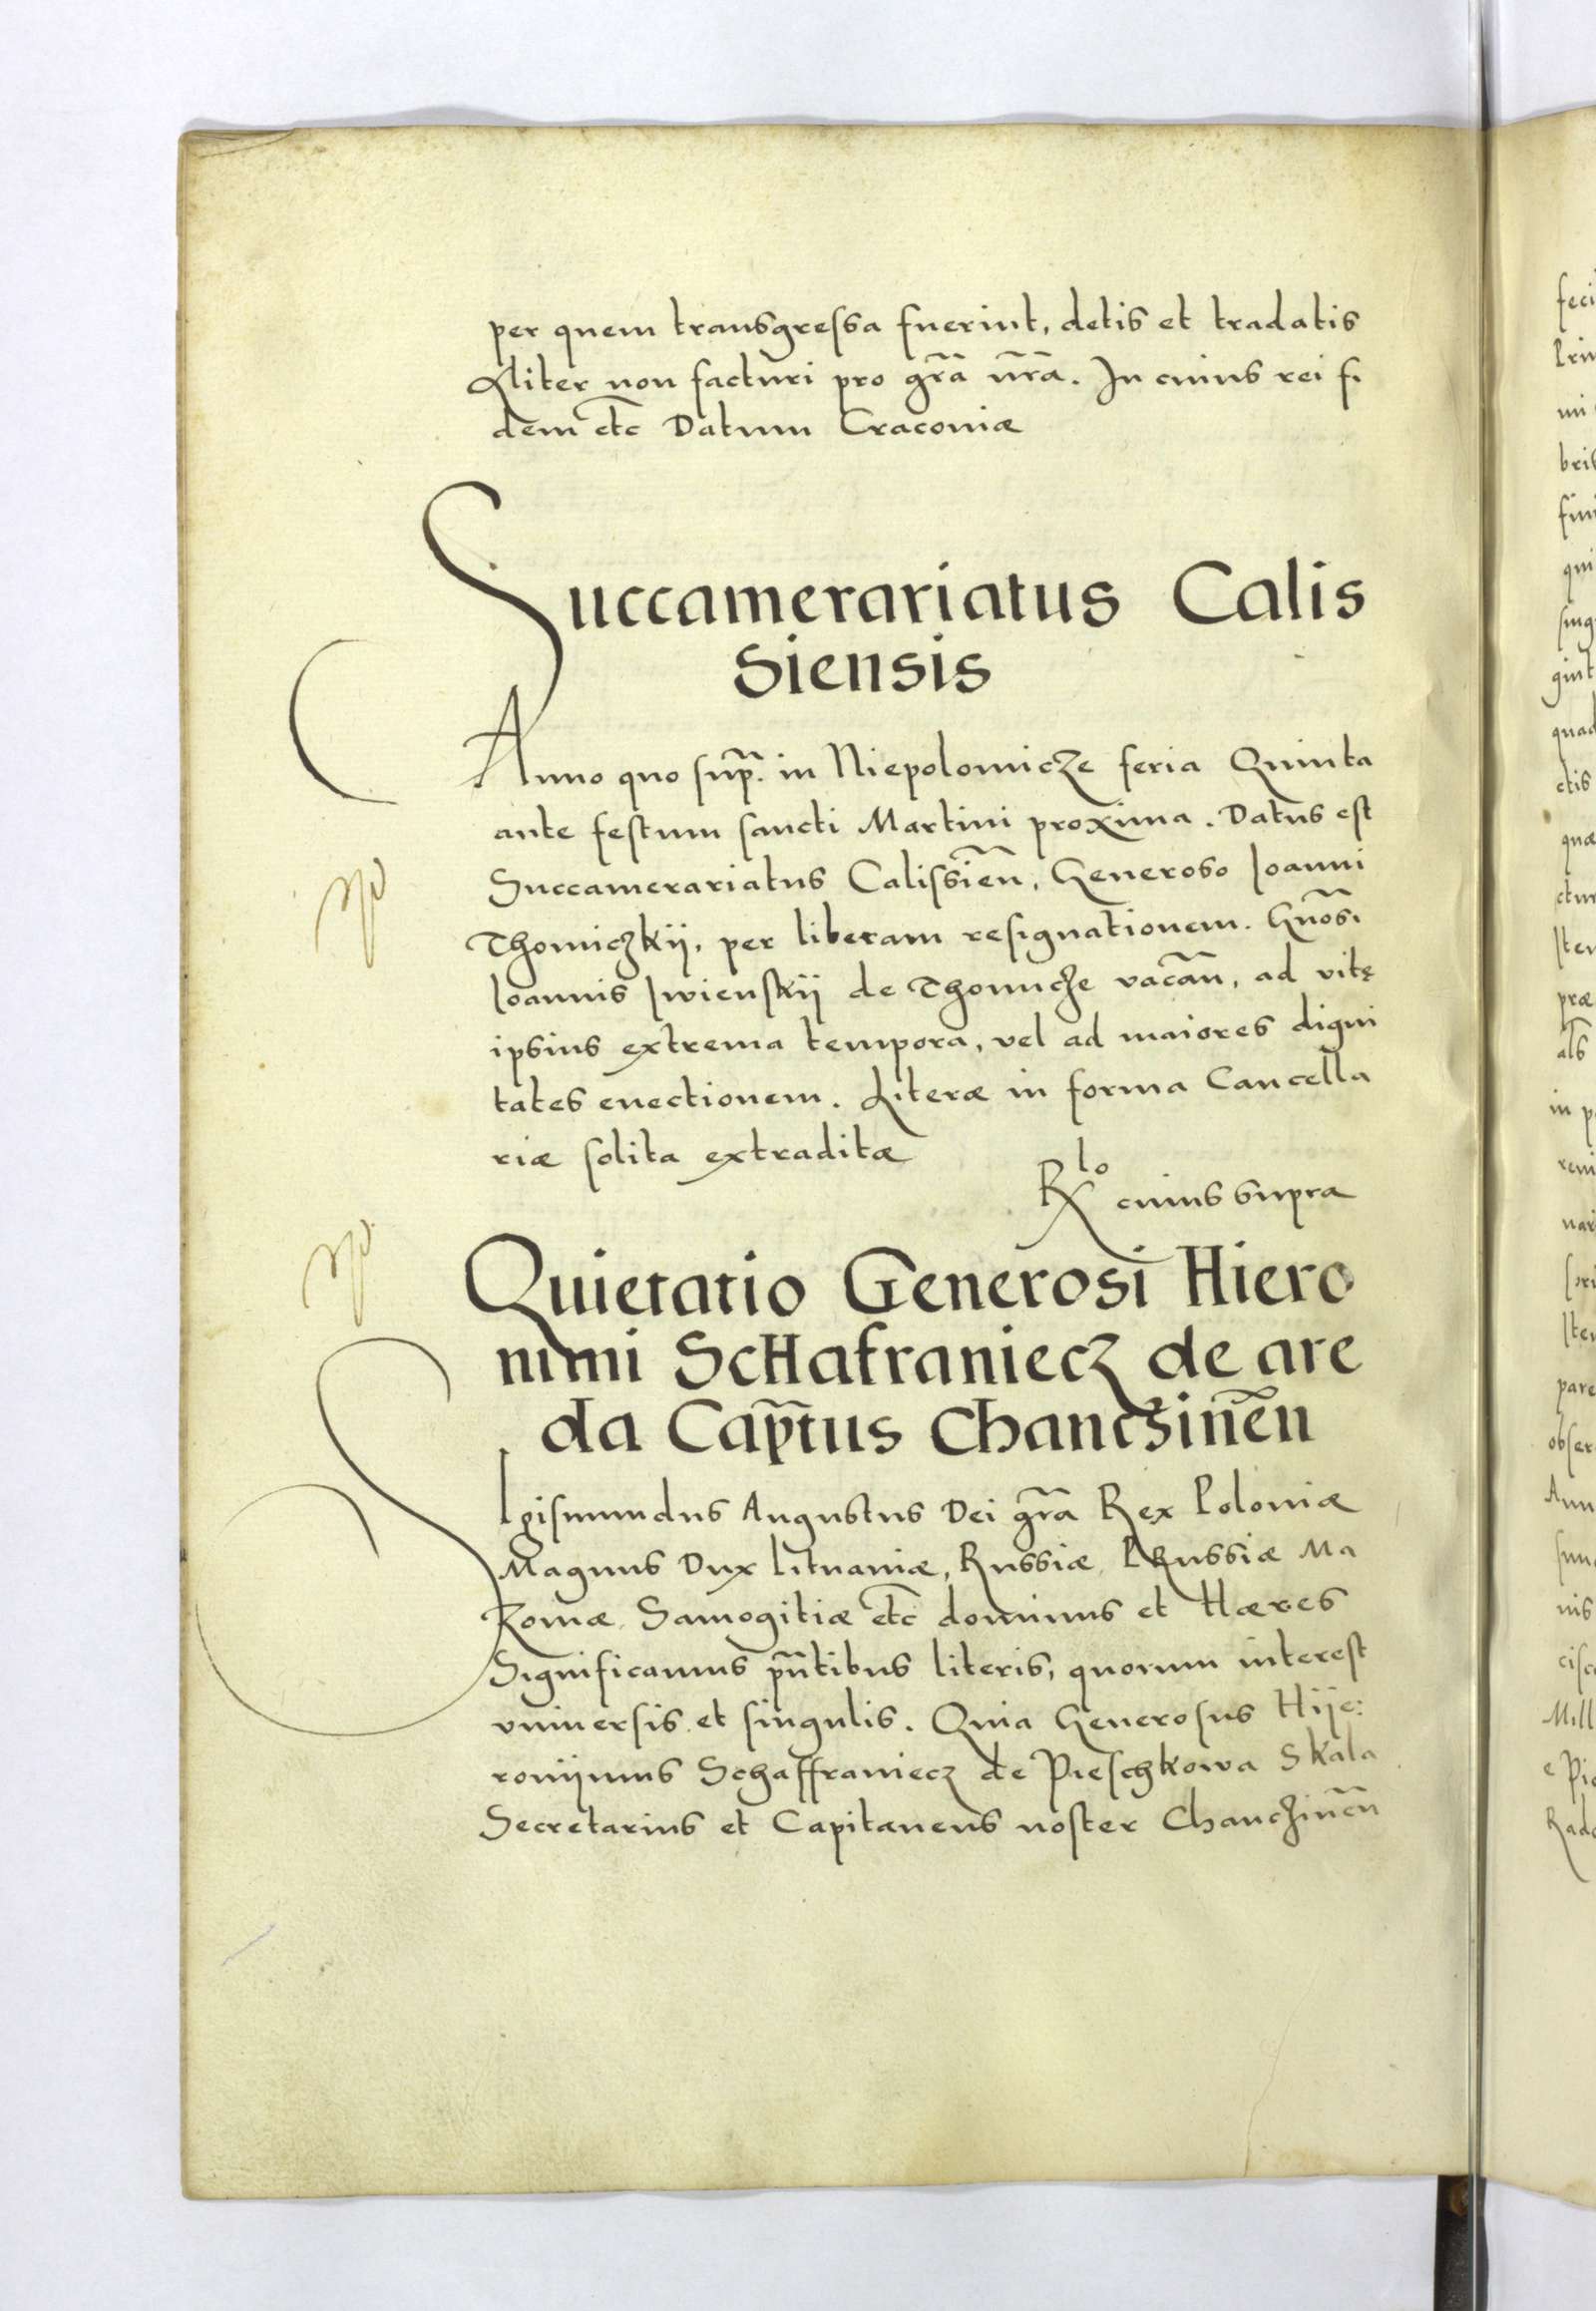 per quem transgressa fuerint, detis et tradatis
Aliter non facturi pro gr̃a nr̃a. In cuius rei fi
dem etc̃ Datum Craconiæ
Succamerariatus Calis
siensis
Anno quo sup̃. in Niepolomicze feria Quinta
ante festum sancti Martini proxima. Datus est
Succamerariatus Calissien̄, Generoso Joanni
Thomiczkij, per liberam resignationem. Gn̄osi
Joannis Iwienskij de Thomicze vacan̄, ad vitę
ipsius extrema tempora, vel ad maiores digni
tates euectionem. Literæ in forma Cancella
riæ solita extraditæ
Rlo cuius supra
Quietatio Generosi Hiero
nimi Schafraniecz de are
da Cap̃tus Chanczinen̄
Sigismundus Augustus Dei gr̃a Rex Poloniæ
Magnus Dux Lituaniæ, Russiæ, PRussiæ Ma
zoniæ Samogitiæ etc̃ dominus et Hæres
Significamus pn̄tibus literis, quorum interest
vniuersis et singulis. Quia Generosus Hije:
ronijmus Schaffraniecz de Pieschkowa Skala
Secretarius et Capitaneus noster Chanczinen̄